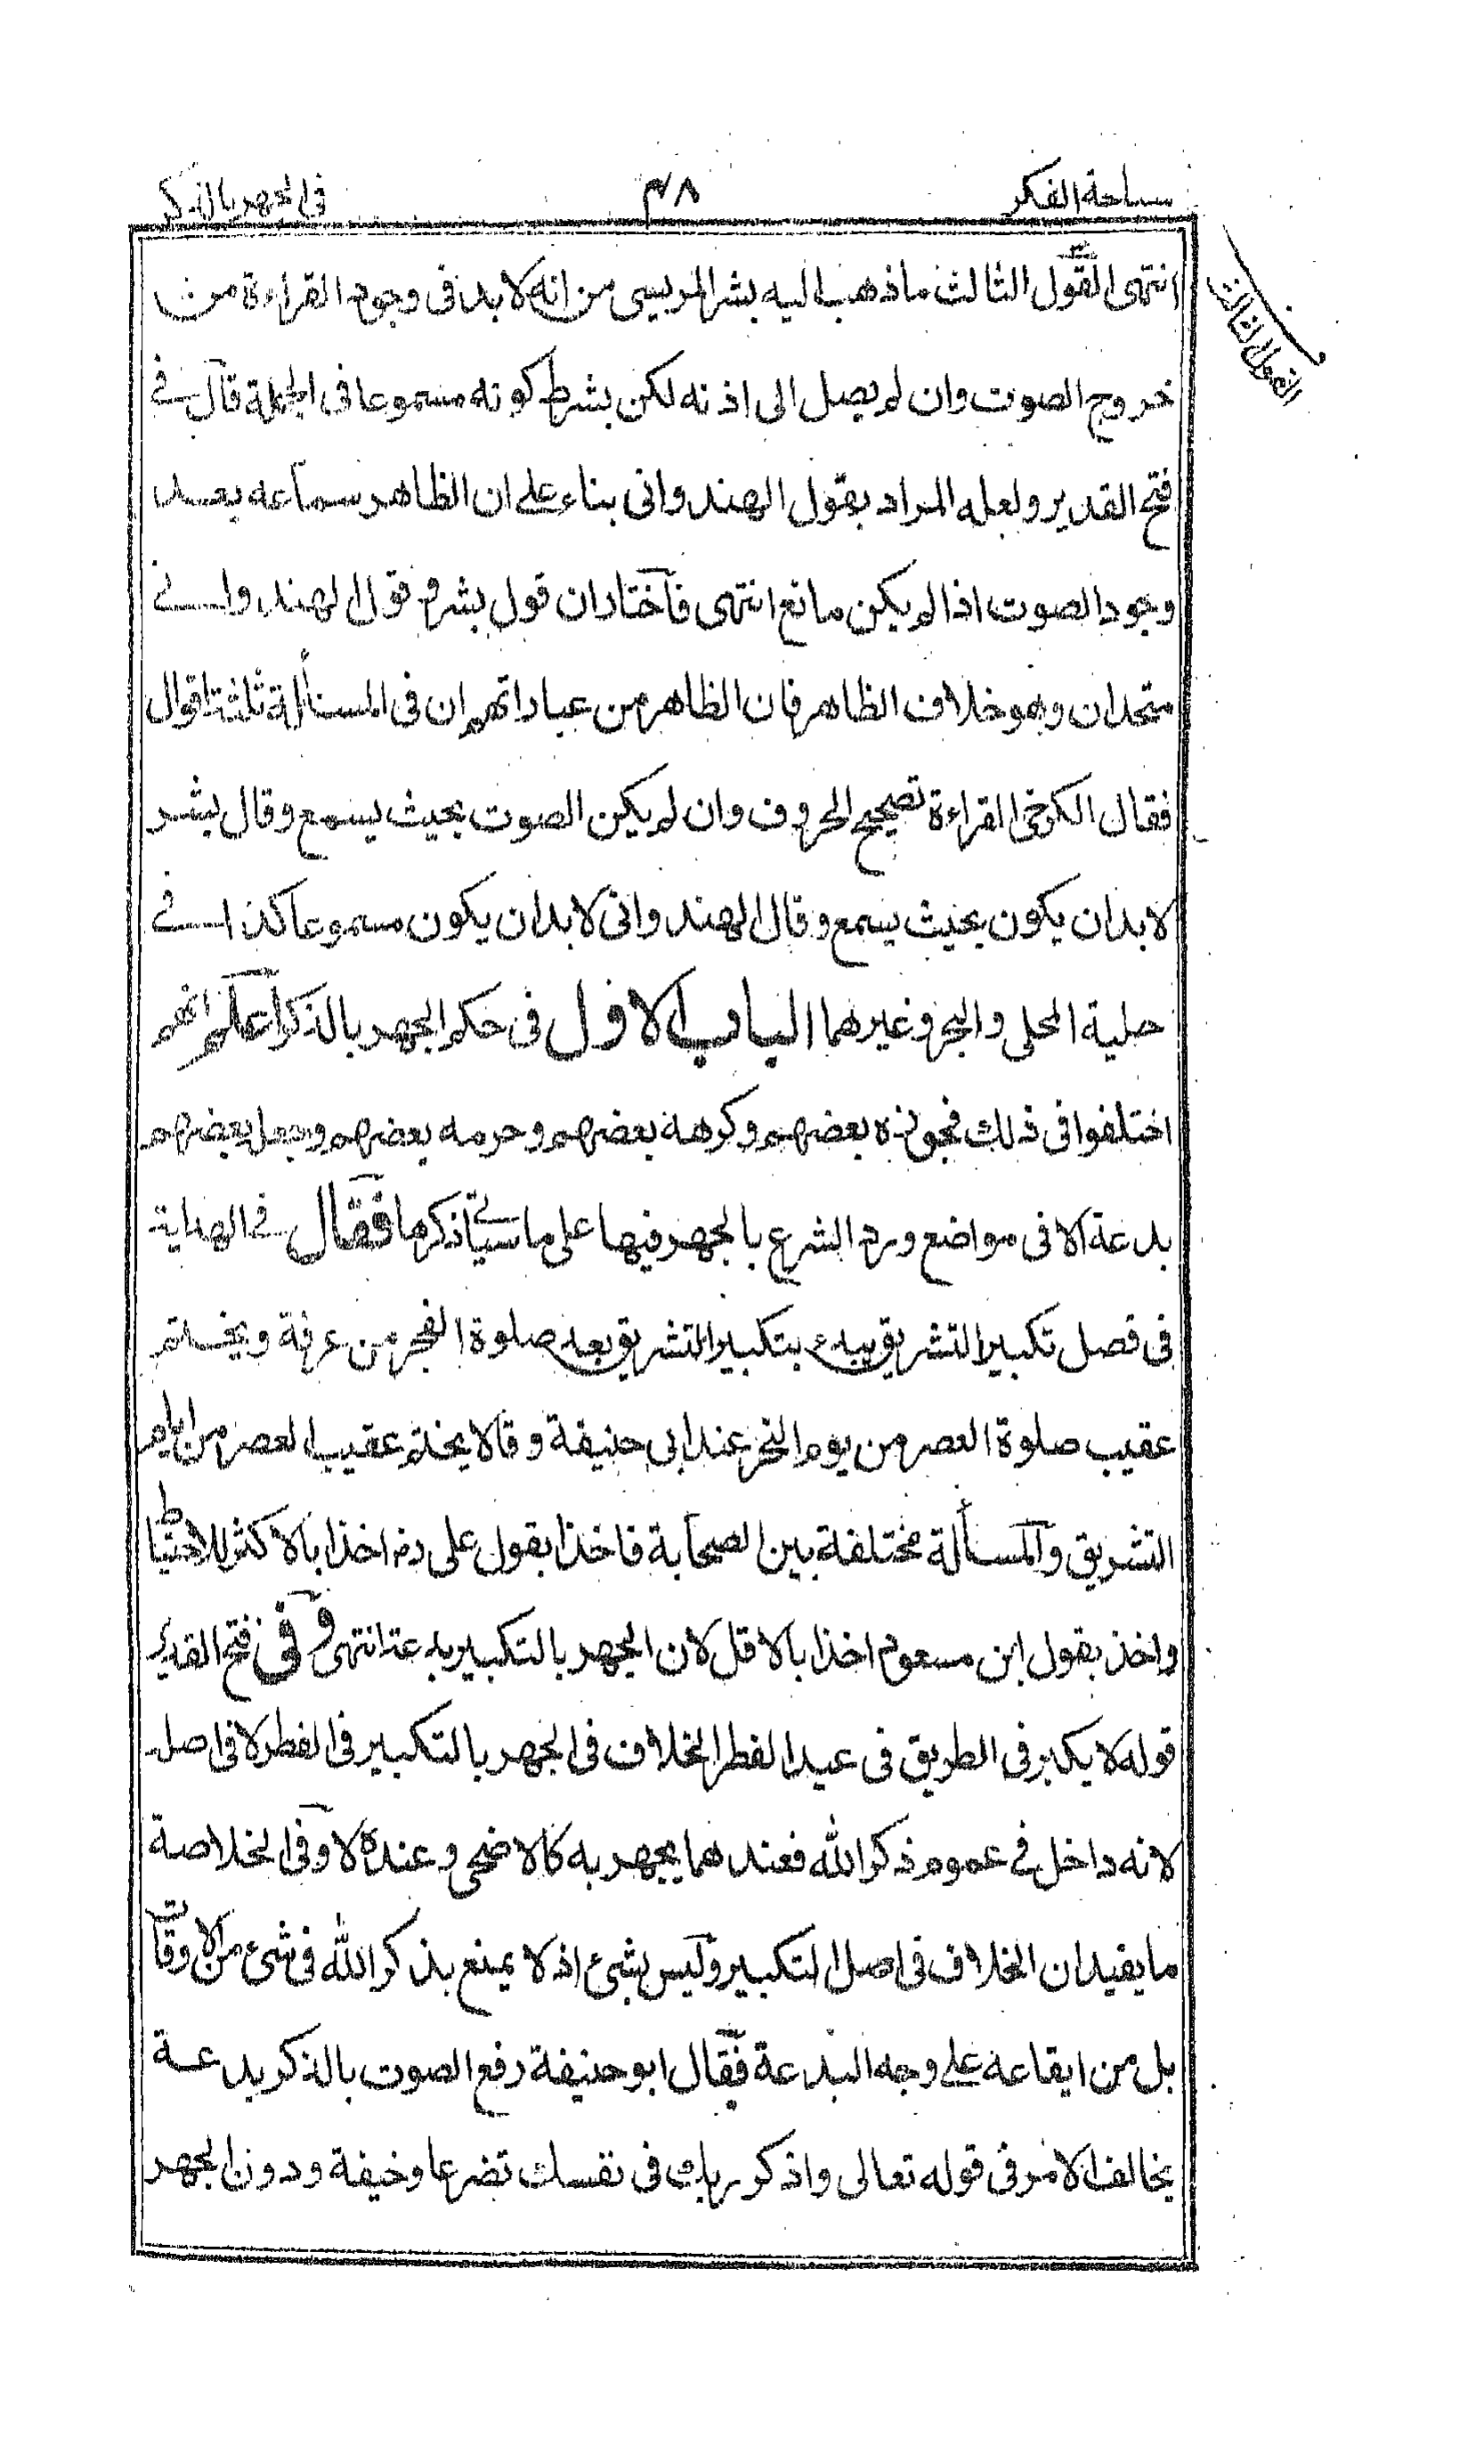 سباحة الفكر ٤٨ في الجهر بالذكر
القول الثالث
انتهى القول الثالث ما ذهب اليه بشر المريسى من انه لا بد فى وجود القراءة من
خروج الصوت وان لم يصل الى اذنه لكن بشرط كونه مسموعا فى الجملة قال في
فتح القدير ولعله المراد بقول الهندوانى بناء على ان الظاهر سماعه بعد
وجود الصوت اذا لم يكن مانع انتهى فاختار ان قول بشر و قول الهندواني
متحدان وهو خلاف الظاهر فان الظاهر من عباراتهم ان فى المسألة ثلثة اقوال
فقال الكرخى القراءة تصحيح الحروف وان لم يكن الصوت بحيث يسمع وقال بشر
لا بد ان يكون بحيث يسمع وقال الهندوانى لا بد ان يكون مسموعا كذا في
حلية المحلى والبحر وغيرهما الباب الاول فى حكم الجهر بالذكر اعلم انهم
اختلفوا فى ذلك فجوزه بعضهم وكرهه بعضهم وحرمه بعضهم وجعل بعضهم
بدعة الا فى مواضع ورد الشرع بالجهر فيها على ما سيأتي ذكرها فقال في الهداية
فى فصل تكبير التشريق يبدء بتكبير التشريق بعد صلوة الفجر من عرفة ويختم
عقيب صلوة العصر من يوم النحر عند ابى حنيفة وقالا يختم عقيب العصر من ايام
التشريق والمسألة مختلفة بين الصحابة فاخذا بقول على رض اخذا بالاكثر للاحتياط
واخذ بقول ابن مسعود اخذا بالاقل لان الجهر بالتكبير بدعة انتهى وفى فتح القدير
قوله لا يكبر فى الطريق فى عيد الفطر الخلاف فى الجهر بالتكبير فى الفطر لا فى اصل
لانه داخل في عموم ذكر الله فعندهما يجهر به كالاضحى وعنده لا وفى الخلاصة
ما يفيد ان الخلاف فى اصل التكبير وليس بشئ اذ لا يمنع بذكر الله فى شئ من الاوقات
بل من ايقاعه على وجه البدعة فقال ابو حنيفة رفع الصوت بالذكر بدعة
يخالف الامر فى قوله تعالى واذكر ربك فى نفسك تضرعا وخيفة ودون الجهر